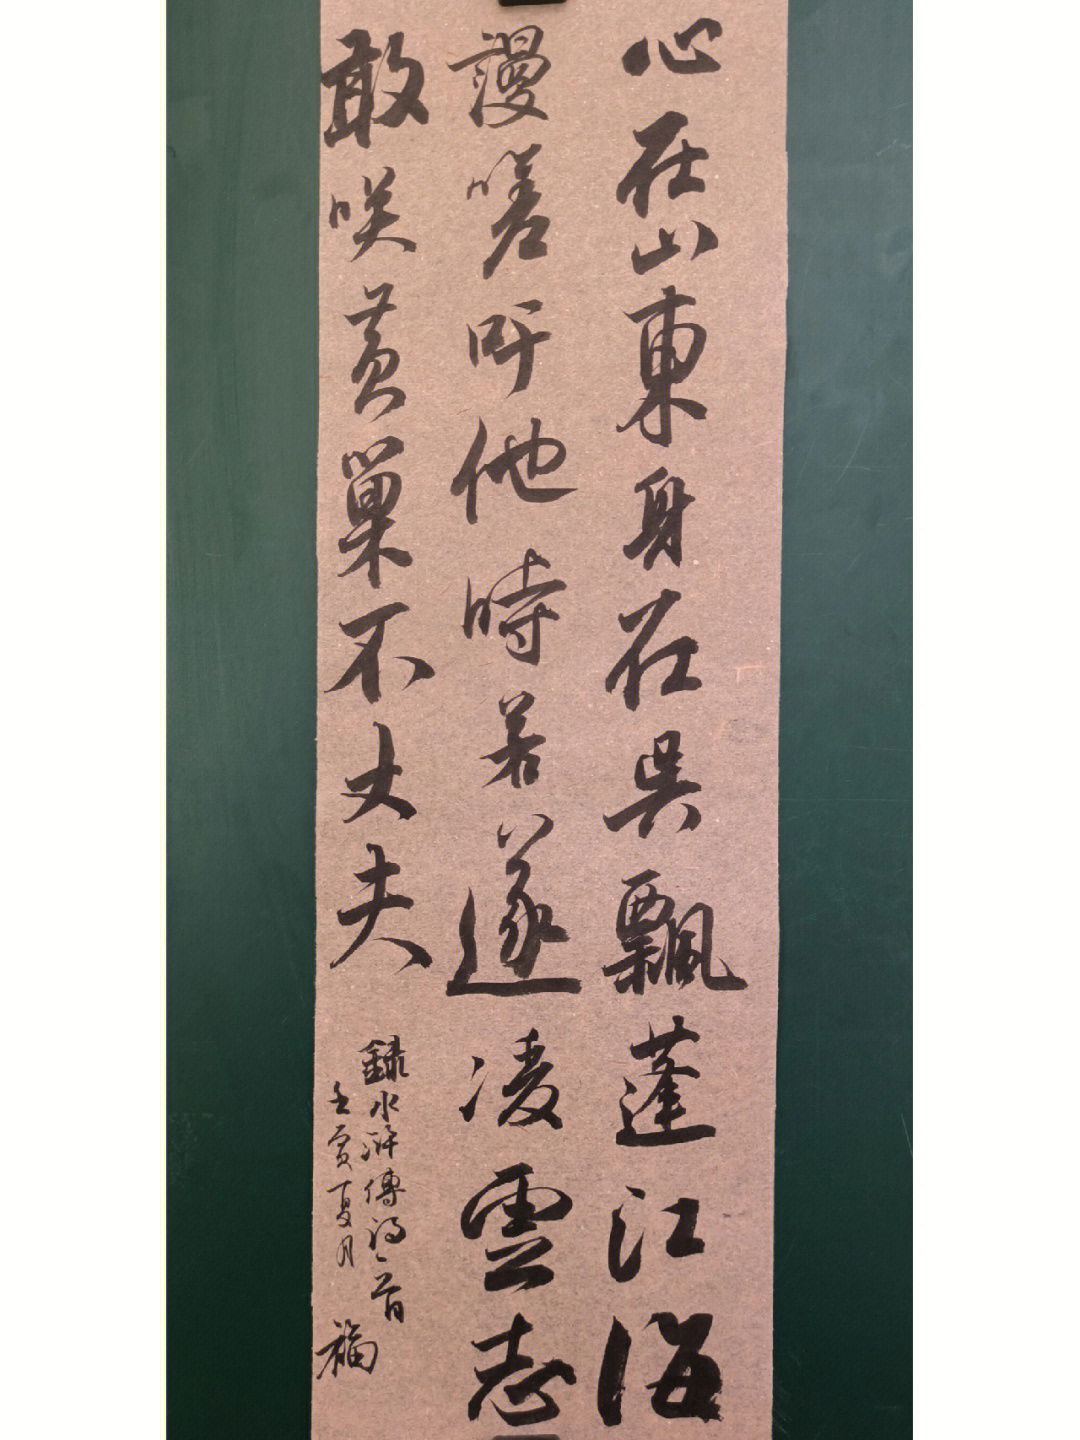 心在山東身在吳飄蓬江海
謾嗟吁他時若遂凌雲志
敢咲黃巢不丈夫
録水滸傳詩一首
壬寅夏月
福